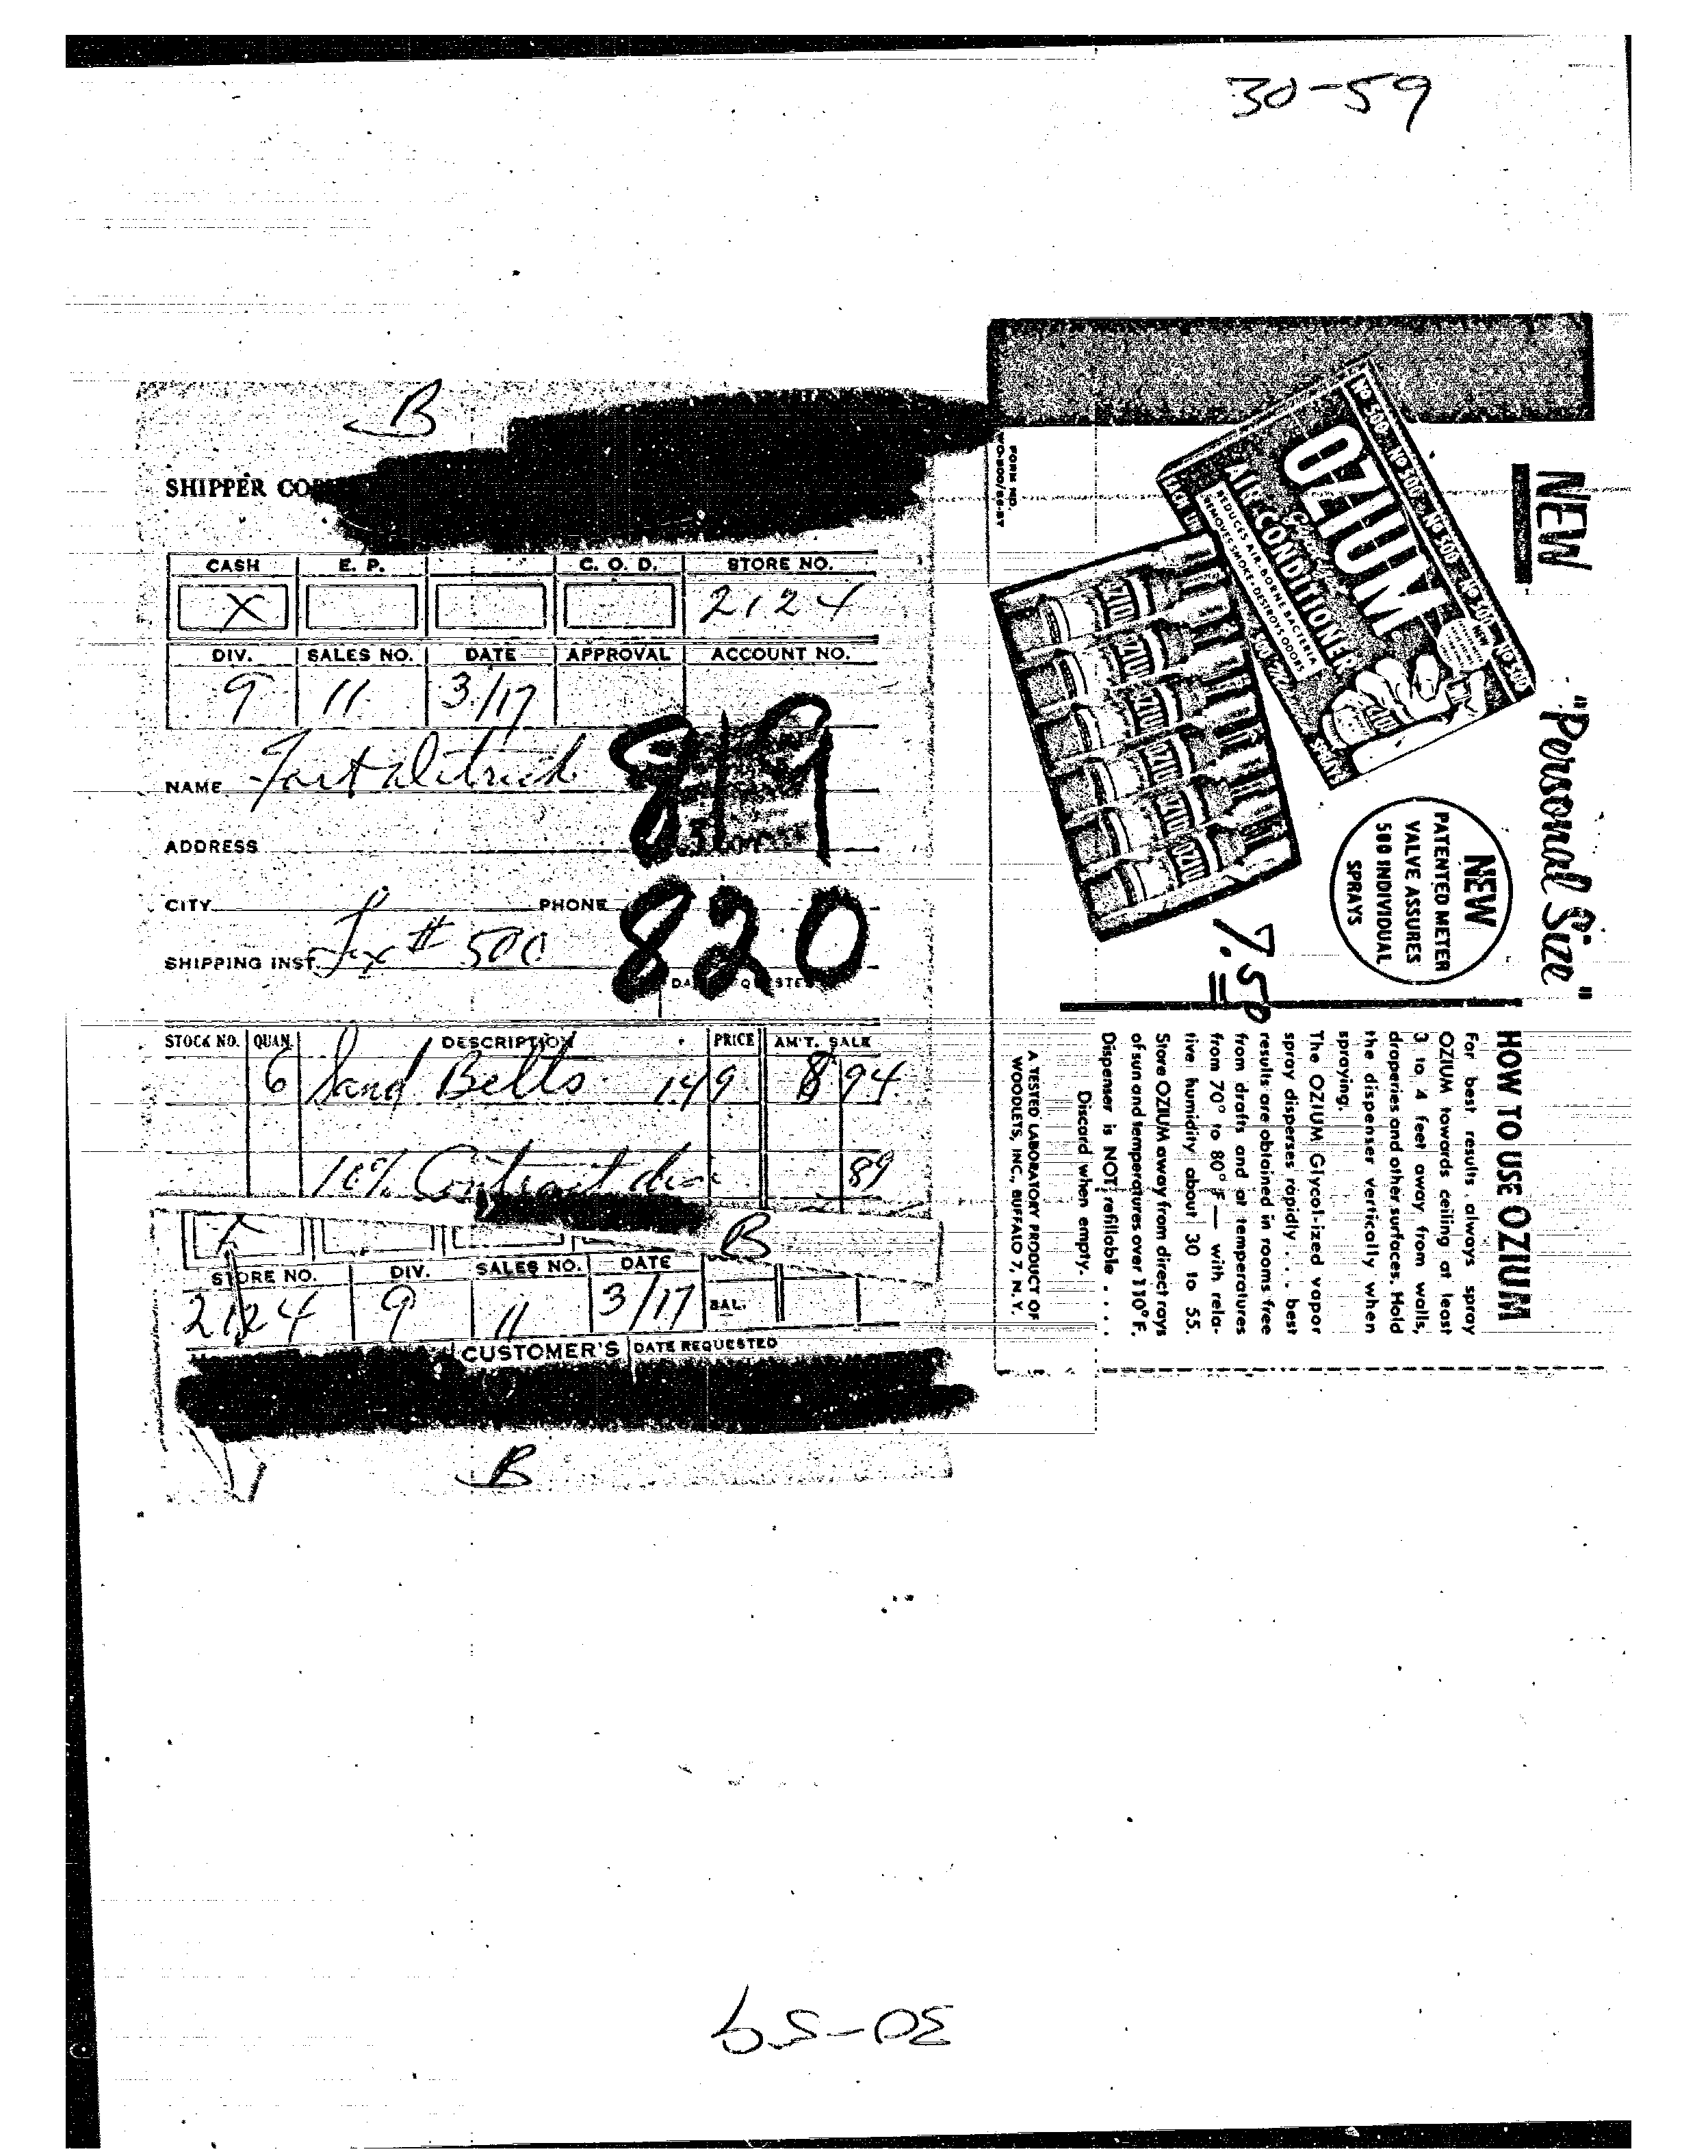 30-59
B
SHIPPER
CASH E. P. C. O. D. STORE NO.
X 2124
DIV. SALES NO. DATE APPROVAL ACCOUNT NO.
9 11 3/17
819
NAME Fort Detrick
ADDRESS
CITY PHONE
820
SHIPPING INST. Fix # 500
STOCK NO. QUAN. DESCRIPTION PRICE AM'T. SALE
6 Sand Belts 149 8 94
10% Contract 89
X B
STORE NO. DIV. SALES NO. DATE
2124 9 11 3/17 BAL.
CUSTOMER'S DATE REQUESTED
B
FORM NO.
NEW
"Personal Size"
NO 500 NO 500 NO 500 NO 500 NO 500
OZIUM
AIR CONDITIONER
REDUCES AIR-BORNE BACTERIA
REMOVES SMOKE-DESTROYS ODORS
OZIUM
OZIUM
OZIUM
OZIUM
OZIUM
OZIUM
NEW
PATENTED METER
VALVE ASSURES
500 INDIVIDUAL
SPRAYS
7.50
HOW TO USE OZIUM
For best results always spray
OZIUM towards ceiling at least
3 to 4 feet away from walls,
draperies and other surfaces. Hold
the dispenser vertically when
spraying.
The OZIUM Glycol-ized vapor
spray disperses rapidly . . . best
results are obtained in rooms free
from drafts and at temperatures
from 70° to 80° F — with rela-
tive humidity about 30 to 55.
Store OZIUM away from direct rays
of sun and temperatures over 110° F.
Dispenser is NOT refillable . . . .
Discard when empty.
A TESTED LABORATORY PRODUCT OF
WOODLETS, INC., BUFFALO 7, N. Y.
30-59